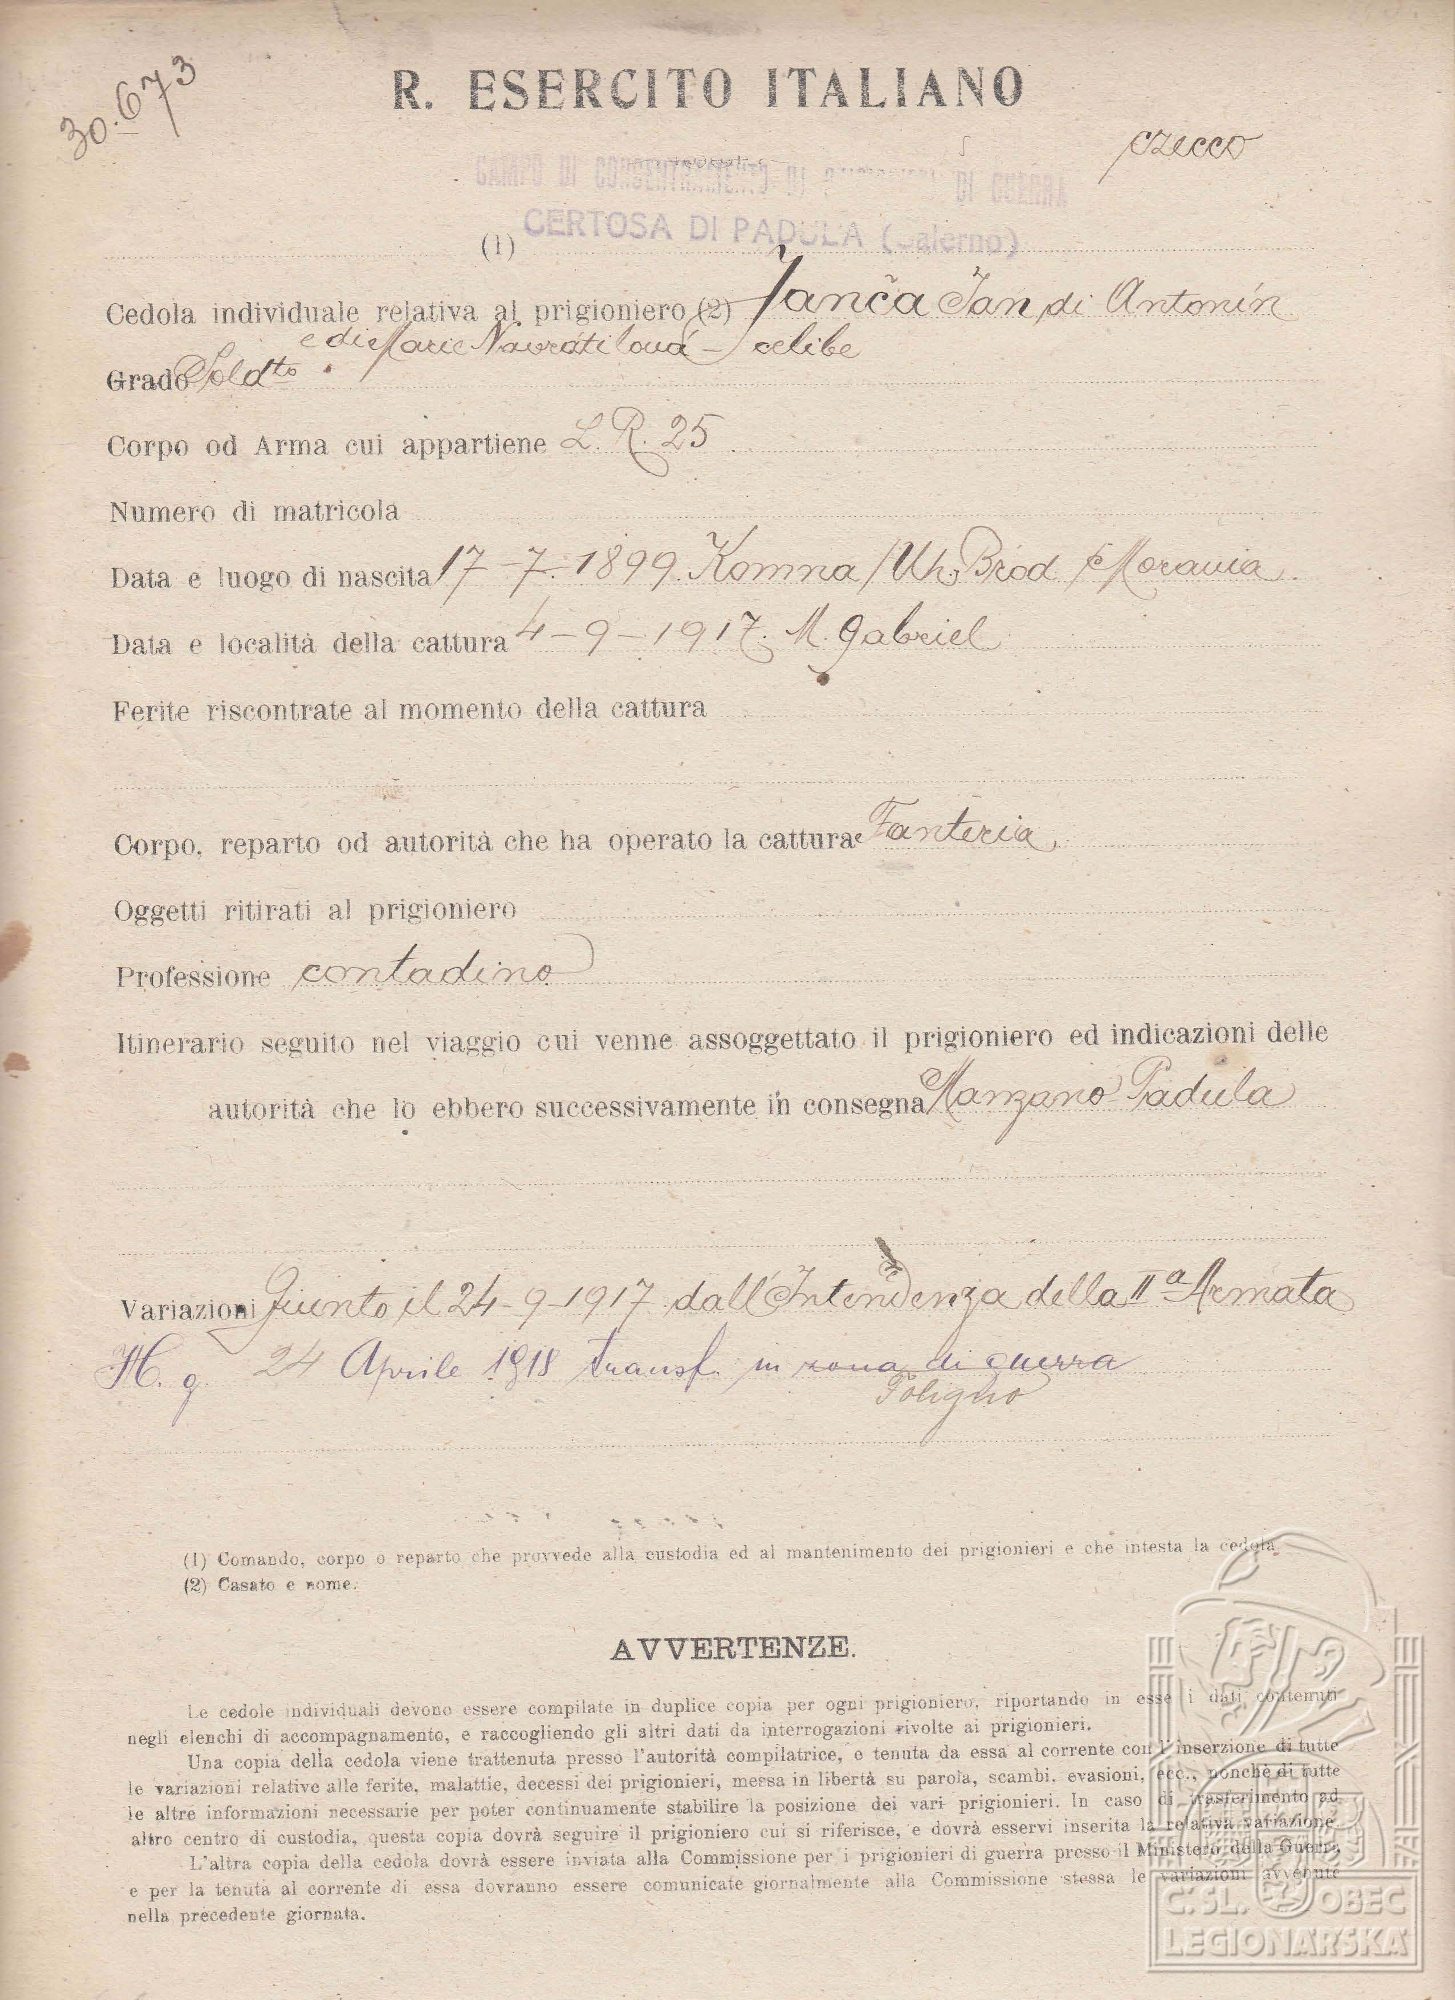 30.673
R. ESERCITO ITALIANO
czecco
CAMPO DI CONCENTRAMENTO DI PRIGIONIERI DI GUERRA
CERTOSA DI PADULA (Salerno)
(1)
Cedola individuale relativa al prigioniero (2) Janča Jan di Antonín
e di Marie Navrátilová - celibe
Grado Soldto
Corpo od Arma cui appartiene L. R. 25
Numero di matricola
Data e luogo di nascita 17-7-1899 Komna /Uh. Brod Moravia
Data e località della cattura 4-9-1917. M. Gabriel
Ferite riscontrate al momento della cattura
Corpo, reparto od autorità che ha operato la cattura Fanteria
Oggetti ritirati al prigioniero
Professione contadino
Itinerario seguito nel viaggio cui venne assoggettato il prigioniero ed indicazioni delle
autorità che lo ebbero successivamente in consegna Manzano Padula
Variazioni Giunto il 24-9-1917 dall'Intendenza della IIa Armata
24 Aprile 1918 transf. in zona di guerra
Foligno
(1) Comando, corpo o reparto che provvede alla custodia ed al mantenimento dei prigionieri e che intesta la cedola
(2) Casato e nome.
AVVERTENZE.
Le cedole individuali devono essere compilate in duplice copia per ogni prigioniero, riportando in esse i dati contenuti
negli elenchi di accompagnamento, e raccogliendo gli altri dati da interrogazioni rivolte ai prigionieri.
Una copia della cedola viene trattenuta presso l'autorità compilatrice, e tenuta da essa al corrente con l'inserzione di tutte
le variazioni relative alle ferite, malattie, decessi dei prigionieri, messa in libertà su parola, scambi, evasioni, ecc., nonchè di tutte
le altre informazioni necessarie per poter continuamente stabilire la posizione dei vari prigionieri. In caso di trasferimento ad
altro centro di custodia, questa copia dovrà seguire il prigioniero cui si riferisce, e dovrà esservi inserita la relativa variazione.
L'altra copia della cedola dovrà essere inviata alla Commissione per i prigionieri di guerra presso il Ministero della Guerra
e per la tenuta al corrente di essa dovranno essere comunicate giornalmente alla Commissione stessa le variazioni avvenute
nella precedente giornata.
Č. SL. OBEC
LEGIONÁŘSKÁ